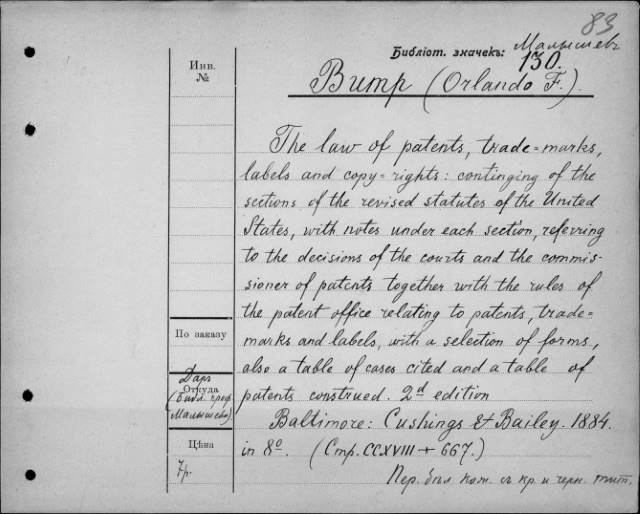 83
Малышевъ
Библіот. значекъ: 130.
Инв.
№
Bump (Orlando F.).
The law of patents, trade=marks,
labels and copy=rights: continging of the
sections of the revised statutes of the United
States, with notes under each section, referring
to the decisions of the courts and the commis-
sioner of patents together with the rules of
the patent office relating to patents, trade=
marks and labels, with a selection of forms,
also a table of cases cited and a table of
patents construed. 2d edition
Baltimore: Cushings & Bailey. 1884.
in 8o. (Стр. CCXVIII + 667.)
Пер. бѣл. кож. съ кр. и черн. тит.
По заказу
Даръ
Откуда
(библ. проф.
Малышева)
Цѣна
7р.